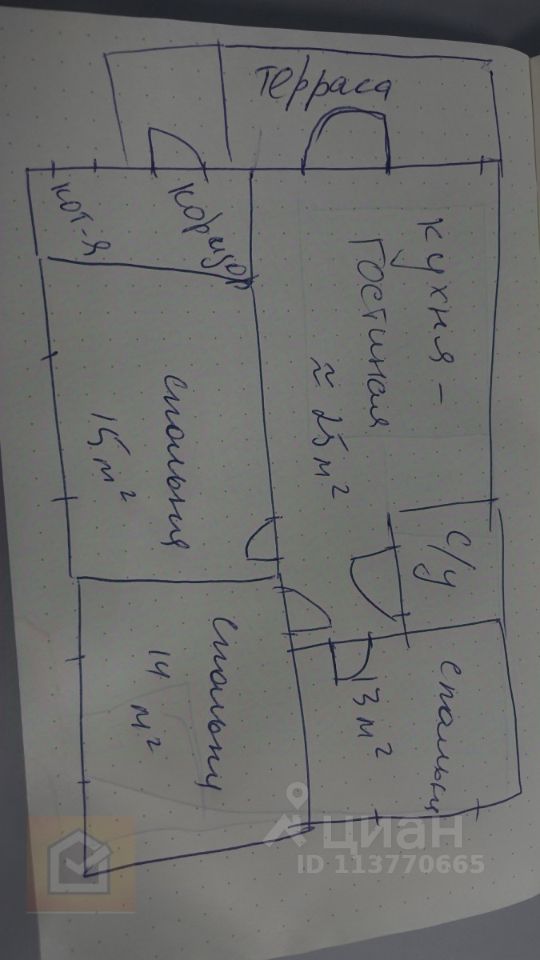 терраса
кухня -
гостиная
≈ 25 м²
коридор
кот-я
спальня
15 м²
с/у
спальня
13 м²
спальня
14 м²
циан
ID 113770665